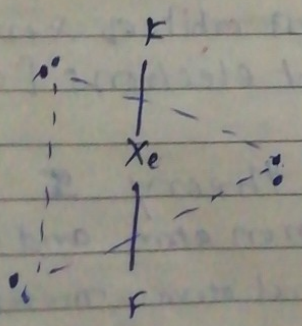 F
Xe
F